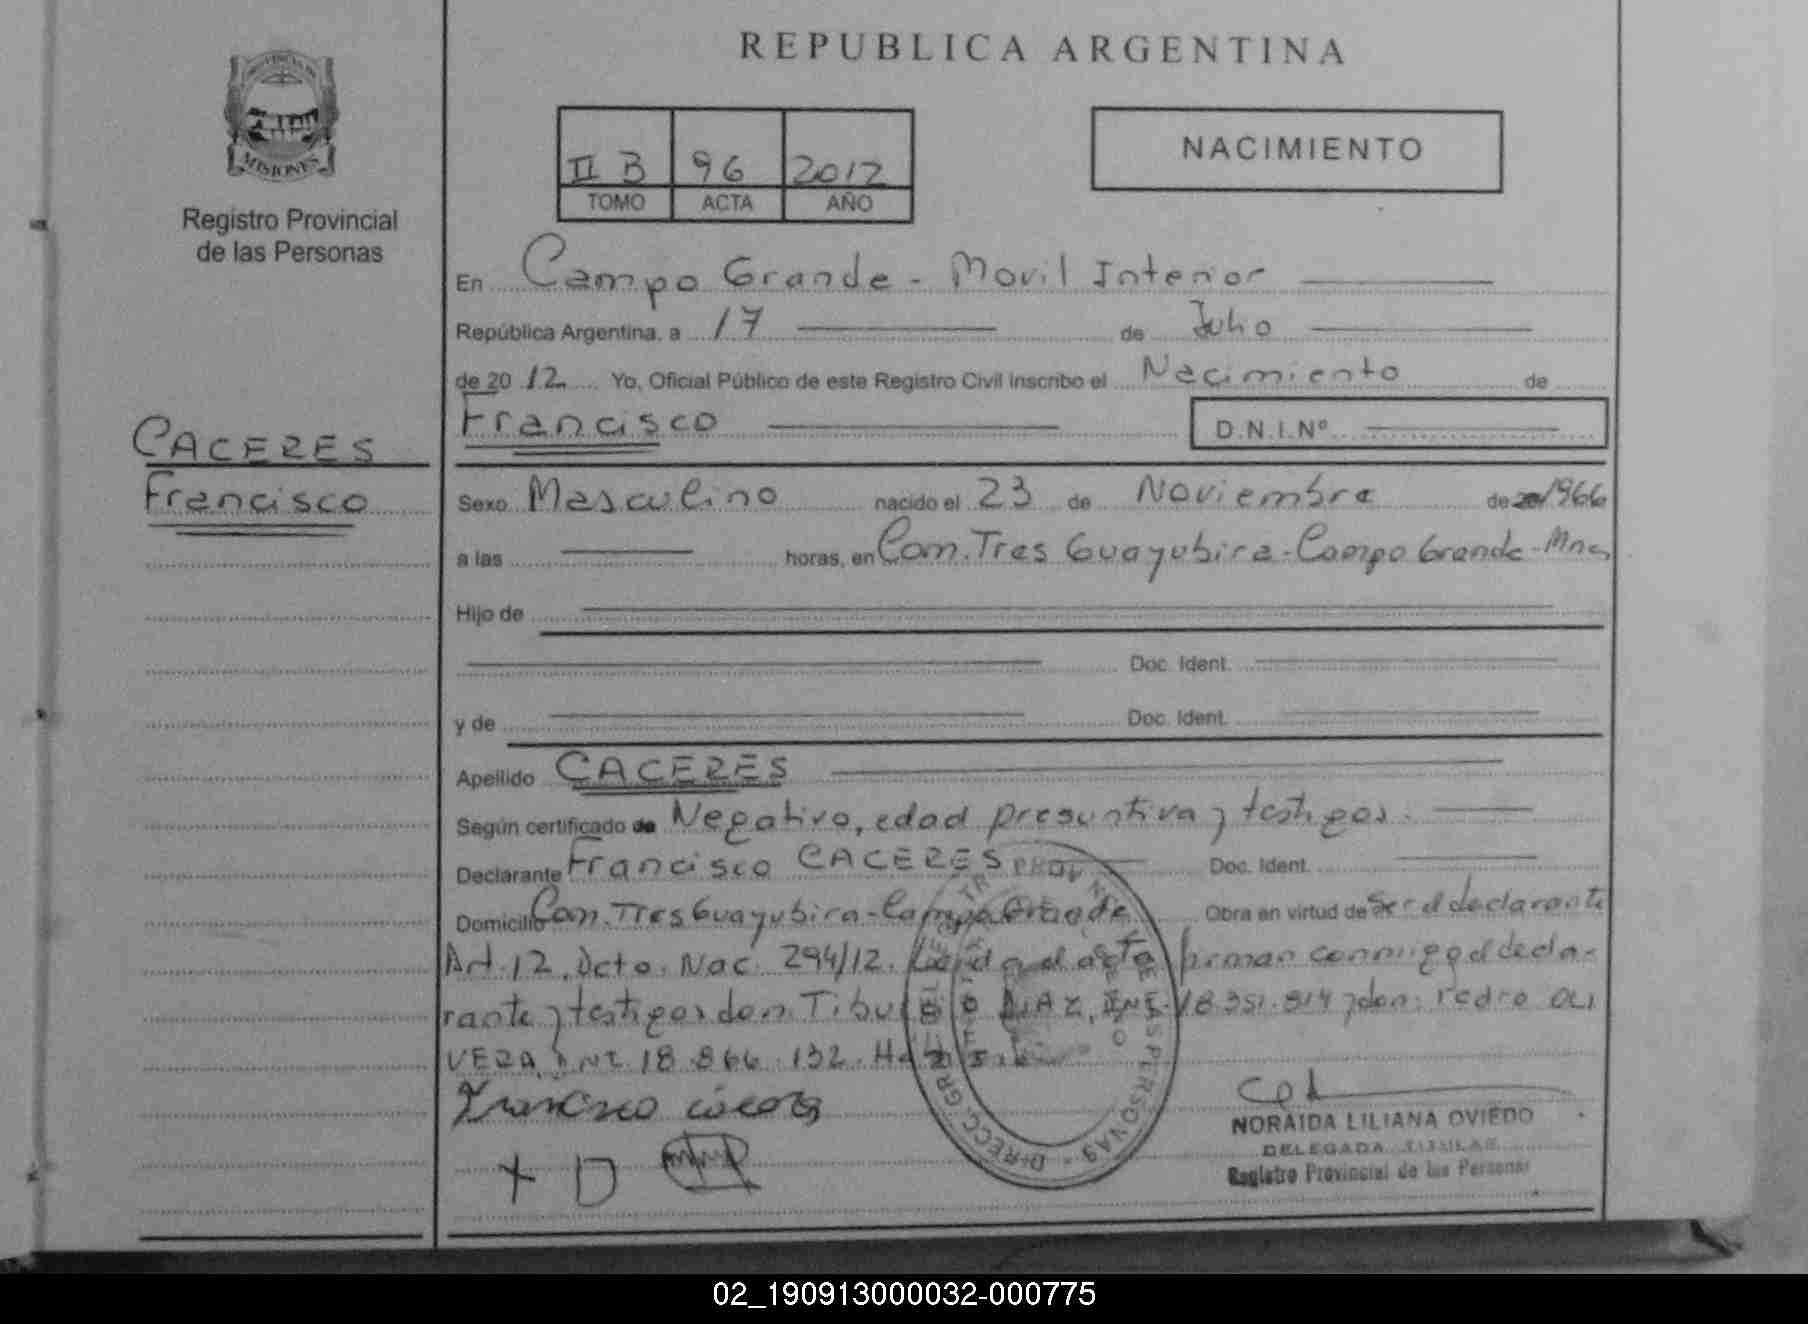 REPUBLICA ARGENTINA
PROVINCIA DE
MISIONES
Registro Provincial
de las Personas
II B 96 2012
TOMO ACTA AÑO
NACIMIENTO
En Campo Grande - Movil Interior
República Argentina, a 17 de Julio
de 2012 Yo, Oficial Público de este Registro Civil inscribo el Nacimiento de
Francisco D.N.I.Nº
CACERES
Francisco
Sexo Masculino nacido el 23 de Noviembre de 1966
a las horas, en Com. Tres Guayubira - Campo Grande - Mnes
Hijo de
Doc. Ident.
y de Doc. Ident.
Apellido CACERES
Según certificado de Negativo, edad presuntiva y testigos.
Declarante Francisco CACERES Doc. Ident.
Domicilio Com. Tres Guayubira - Campo Grande Obra en virtud de Ser el declarante
Art. 12 Dcto. Nac. 294/12. Leida el acta firman conmigo el decla-
rante y testigos don Tiburcio DIAZ, DNI 18.351.814 y don: Pedro OLI
VERA, DNI 18.866.132.
Francisco caceres
+ D
NORAIDA LILIANA OVIEDO
DELEGADA TITULAR
Registro Provincial de las Personas
02_190913000032-000775